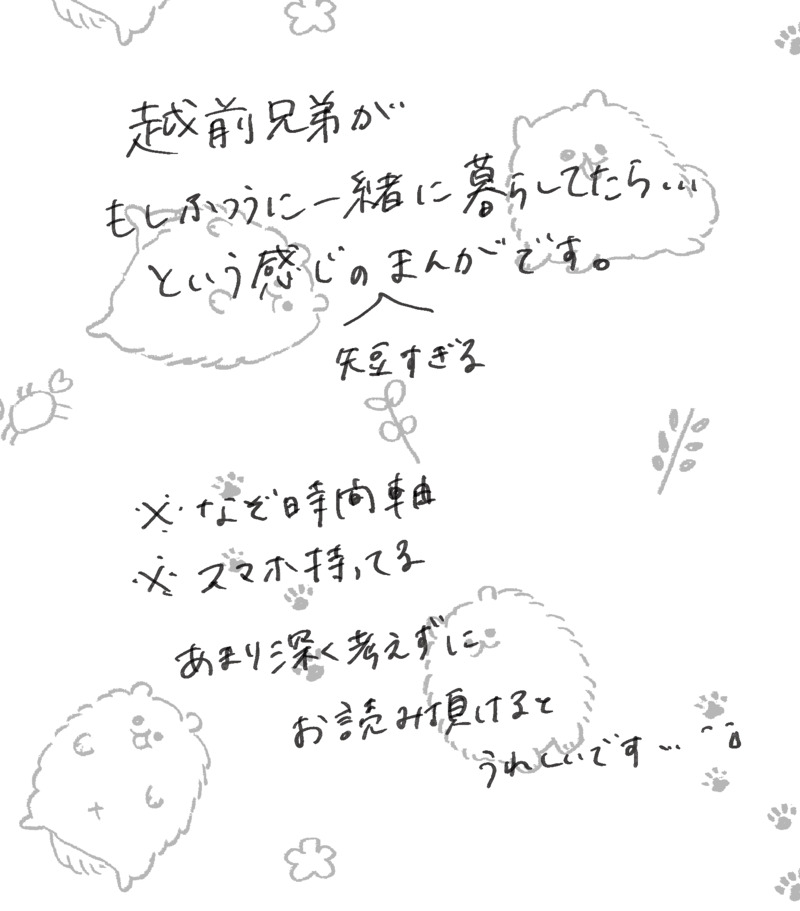 越前兄弟が
もしふつうに一緒に暮らしてたら…
という感じのまんがです。
短すぎる
※なぞ時間軸
※スマホ持ってる
あまり深く考えずに
お読み頂けると
うれしいです…